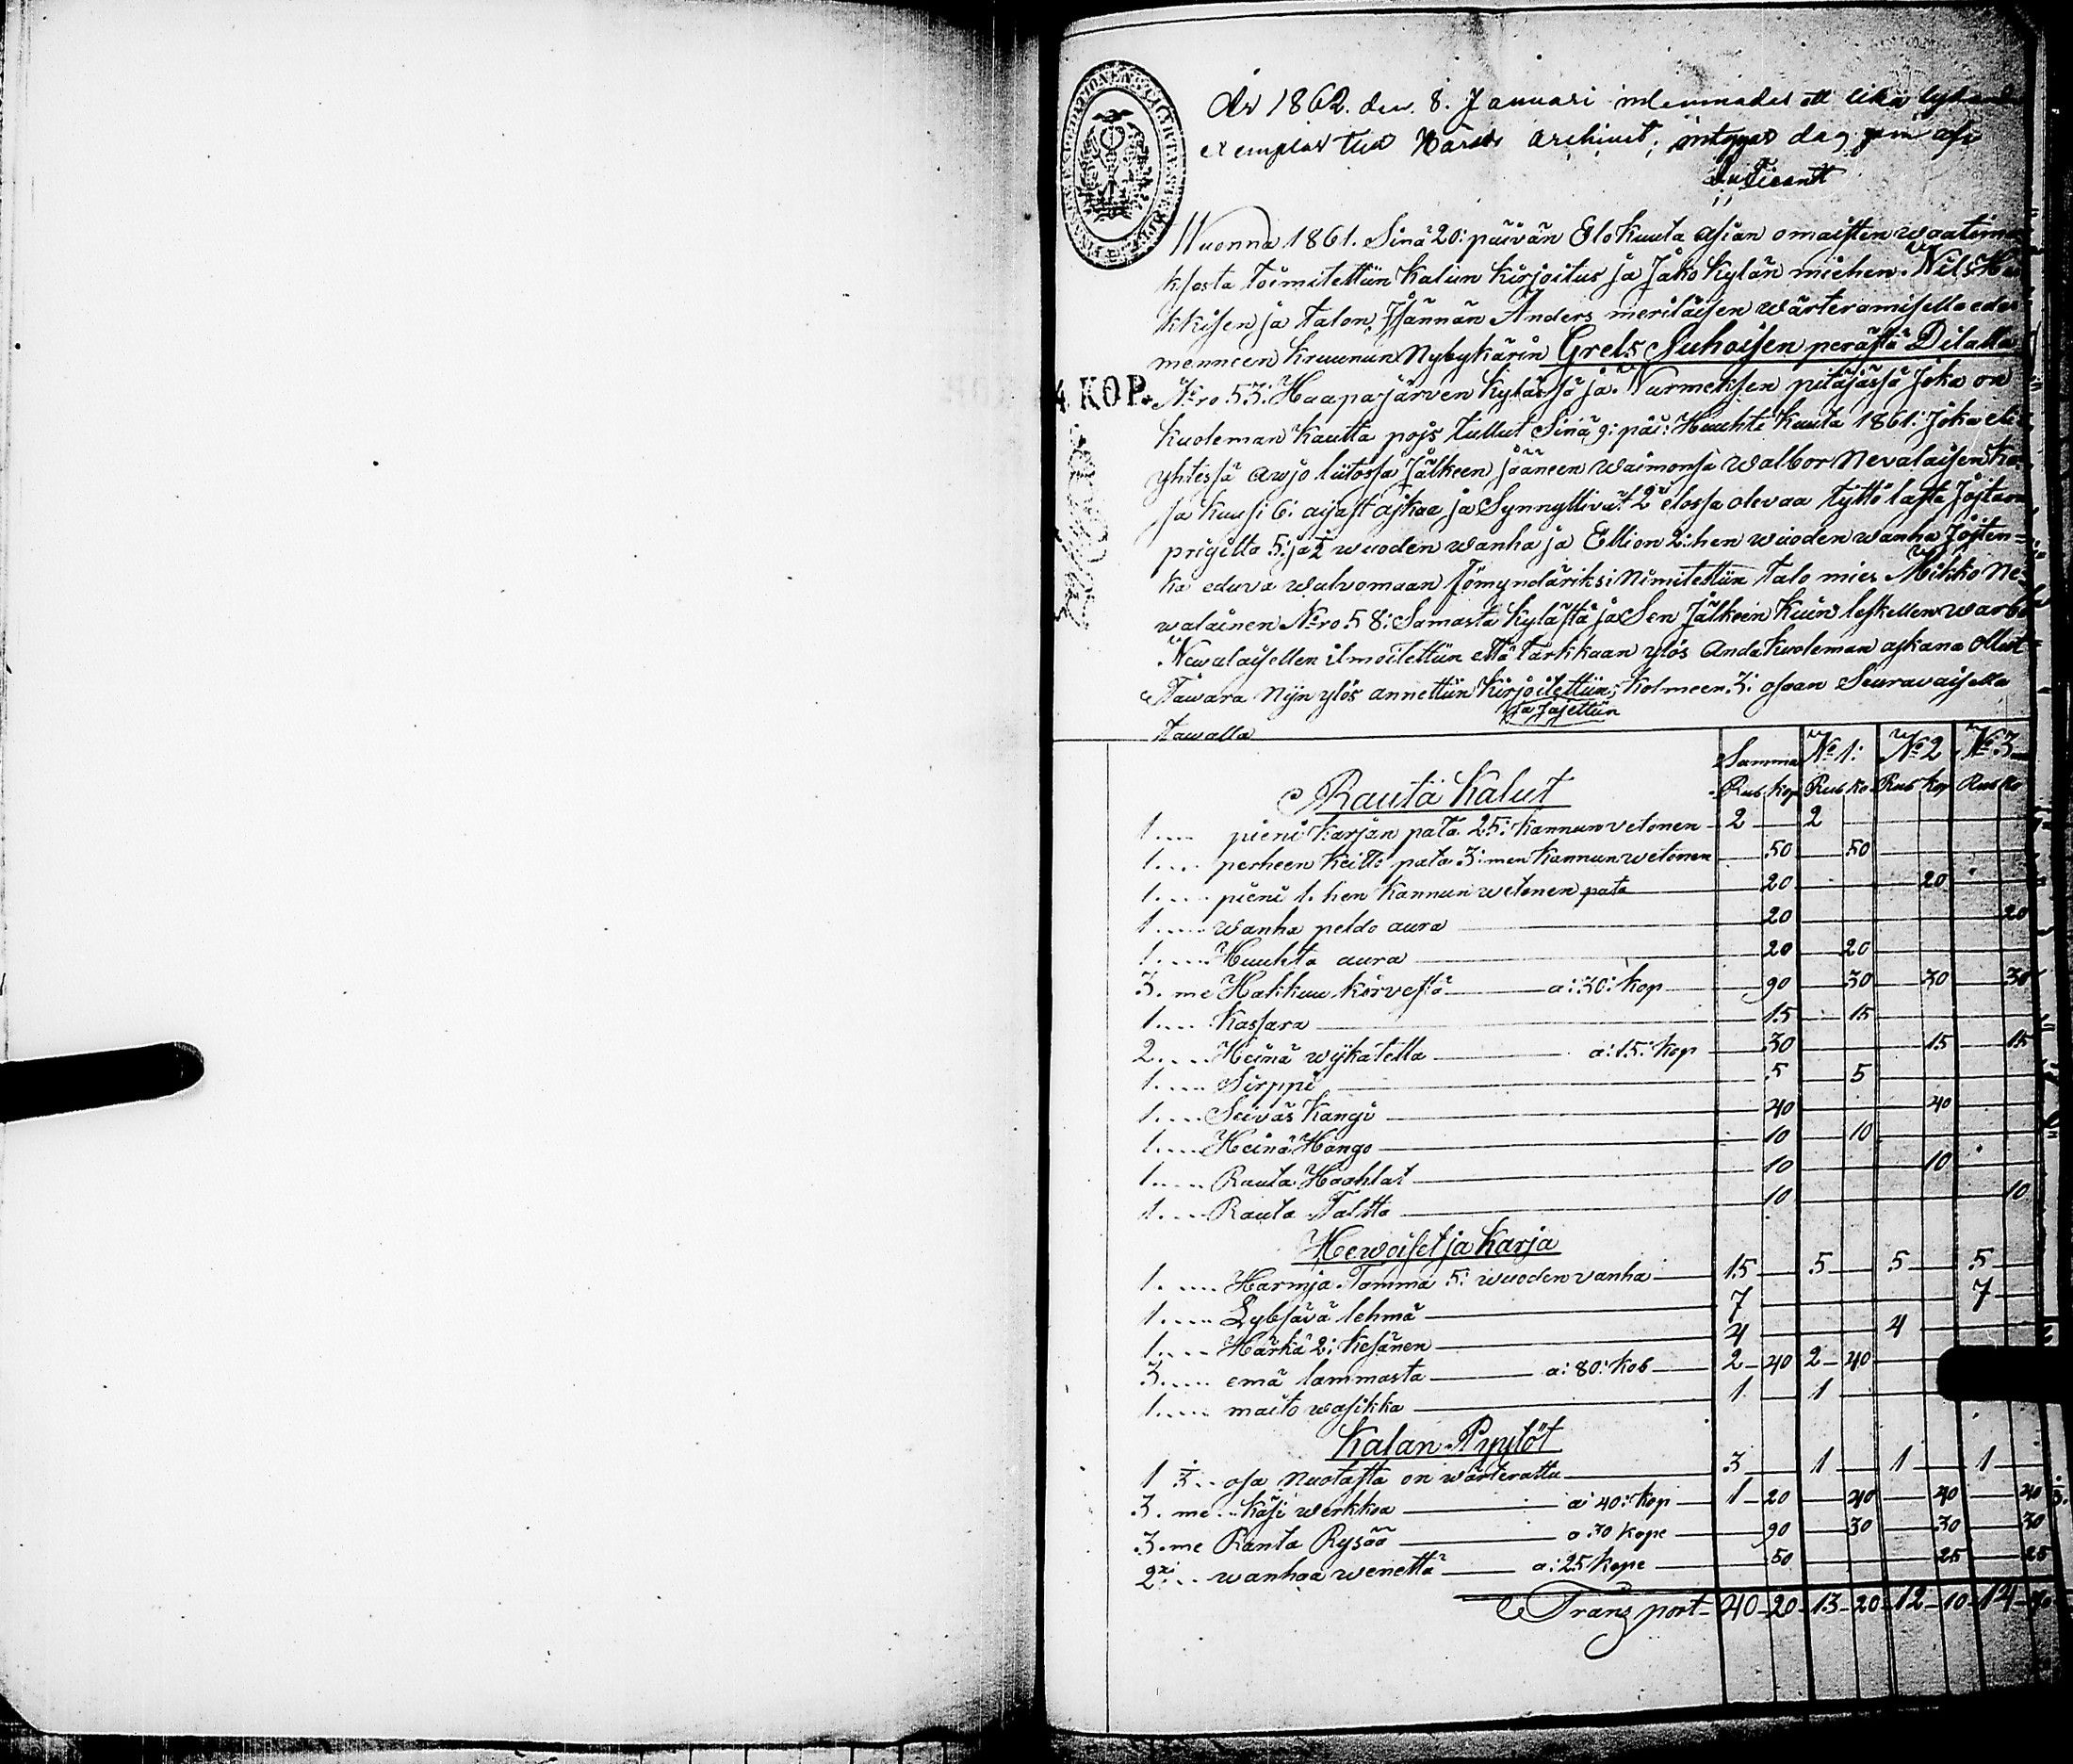 År 1862. den. 8. Januari inlemnades ett lika lydande
exemplar till Härads archivet; intygar dag som ofv
Wuonna 1861. Sinä 20: päivän Elokuuta asian omaisten waatimu
ksesta toimitettiin kalun kirjoitus ja Jako kylän miehen. Nils Ha
kkisen ja talon Isännän Anders meriläisen wärteramisella edes
menneen kruunun Nybykärin Grels Suhoisen perästä Dilalla
4 KOP. Nro 53: Haapajärven kylässä ja. Nurmeksen pitäjässä Joka on
kuoleman kautta pojs tullut Sinä 9: päi: Huuhti kuuta 1861: Joka eli
yhtessä awjo liitossa Jälkeen jääneen waimonsa walbor Nevalaisen ka
sa kuusi 6: ajast ajkaa ja Synnyttivät 2 elossa olevaa tyttö lasta Jojstan
prigitta 5: ja ½ wuoden wanha ja Ellion 2:hen wuoden wanha Jojten=
ka edusa walvomaan Förmyndäriksi Nimitettiin talo mies Mikko Ne
walainen Nro 58: Samasta kylästä ja Sen Jälkeen kuin leskellen warbo
Newalaisellen ilmoitettiin että tarkkaan ylös Anda kuoleman ajkana Ollut
Tawara Nijn ylös annettiin kirjoitettiin; kolmeen 3: osaan Seuravaisella
ja Jajettiin
tawalla
Summa No 1: No 2 No 3
Rauta kalut Rub kop Rub ko Rub kop Rub ko
1 .... pieni karjan pata 25: kannun vetonen 2 2
1 .... perheen keitto pata 3:men kannun wetonen 50 50
1 .... pieni 1. hen kannun wetonen pata 20 20
1 .... wanha peldo aura 20 20
1 .... Huuhta aura 20 20
3. me Hakkuu kirvestä a: 30: kop 90 30 30 30
1 .... kassara 15 15
2 .... Heinä wijkatetta a: 15: kop 30 15 15
1 .... Sirppi 5 5
1 .... Seiväs kangi 40 40
1 .... Heinä Hango 10 10
1 .... Rauta Haahlat 10 10
1 .... Rauta Taltta 10 10
Hewoiset ja karja
1 .... Harmja Tamma 5: wuoden vanha 15 5 5 5
1 .... Lybsävä lehmä 7 7
1 .... Härkä 2: kesänen 4 4
3 .... emä lammasta a: 80: kob 2 40 2 40
1 .... maito wasikka 1 1
Kalan Pyytöt
1/3 .. osa Nuotasta on wärterattu 3 1 1 1
3. me .. käsi werkkoa a: 40: kop 1 20 40 40 40
3. me Ranta Rysää a 30 kope 90 30 30 30
2xi .. wanhaa wenettä a: 25 kope 50 25 25
Transport 40 20 13 20 12 10 14